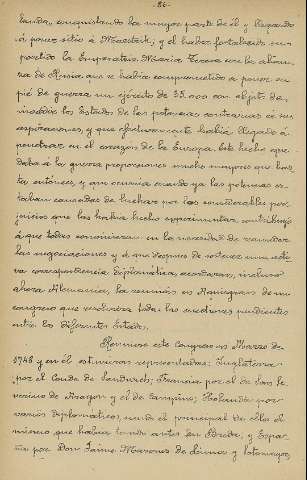 86-
landa, conquistando la mayor parte de él y llegando
á poner sitio á Maestrik; y al haber fortalecido su
partido la Emperatriz María Teresa con la alian-
za de Rusia que se había comprometido a poner en
pié de guerra un ejército de 35.000 con objeto de
invadir los Estados de las potencias contrarias a sus
aspiraciones, y que efectivamente había llegado á
penetrar en el corazón de la Europa. Este hecho que
daba á la guerra proporciones mucho mayores que has
ta entónces, y que ocurría cuando ya las potencias es-
taban cansadas de luchar por los considerables per-
juicios que les había hecho experimentar, contribuyó
á que todas convinieran en la necesidad de reanudar
las negociaciones y á que despues de sostener una acti
va correspondencia diplomática, acordaran, incluso
ahora Alemania, la reunión en Aquisgran de un
congreso que resolviera todas las cuestiones pendientes
entre los diferentes Estados.
Reunióse este Congreso en Marzo de
1748 y en él estuvieron representadas: Inglaterra
por el Conde de Sandwich; Francia por el de San Se
verino de Aragon y el de Holanda por
varios diplomáticos, siendo el principal de ellos el
mismo que había tenido antes en Breda; y Espa-
ña por Don Jaime Masones de Lima y Sotomayor,